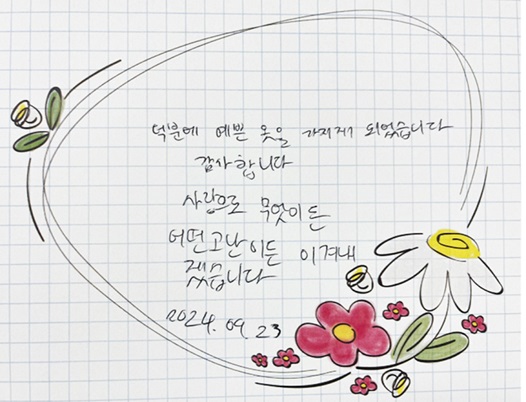 덕분에 예쁜 옷을 가지게 되었습니다
감사합니다
사랑으로 무엇이든
어떤고난이든 이겨내
겠습니다
2024. 09. 23